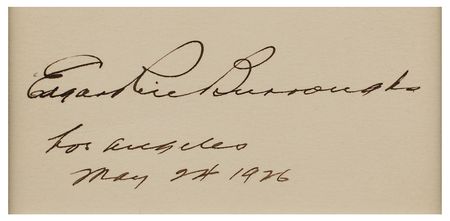 Edgar Rice Burroughs
Los Angeles
May 24 1926